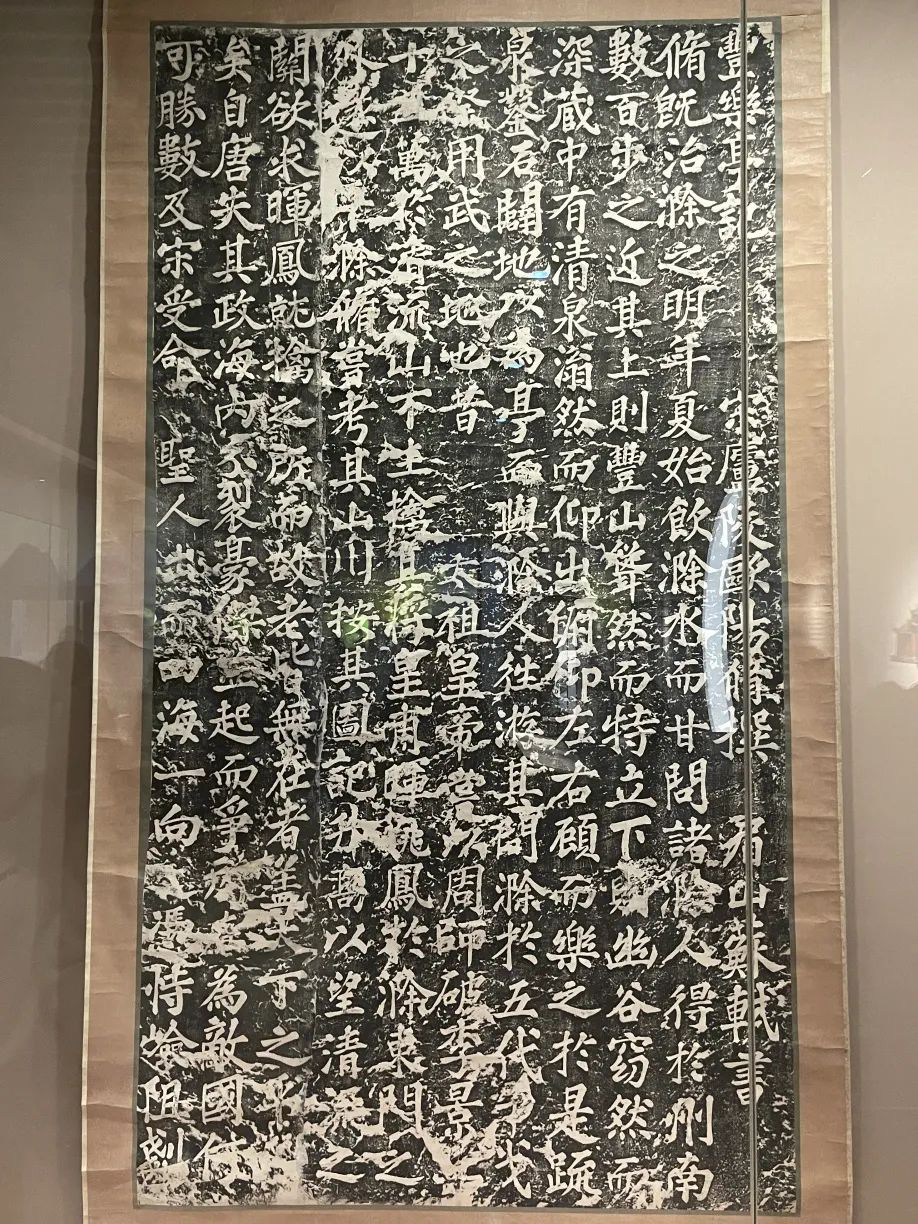 豐樂亭記 宋廬陵歐陽脩撰 眉山蘇軾書
脩既治滁之明年夏始飲滁水而甘問諸滁人得於州南
數百步之近其上則豐山聳然而特立下則幽谷窈然而
深蔵中有清泉滃然而仰出俯仰左右顧而樂之於是疏
泉鑿石闢地以為亭而與滁人往游其間滁於五代干戈
之際用武之地也昔 太祖皇帝嘗以周師破李景
十五萬於清流山下生擒其將皇甫暉姚鳳於滁東門之
外遂以平滁脩嘗考其山川按其圖記升高以望清流之
關欲求暉鳳就擒之所而故老皆無在者蓋天下之平久
矣自唐失其政海內分裂豪傑並起而爭所在為敵國何
可勝數及宋受命 聖人出而四海一向之憑恃險阻剗